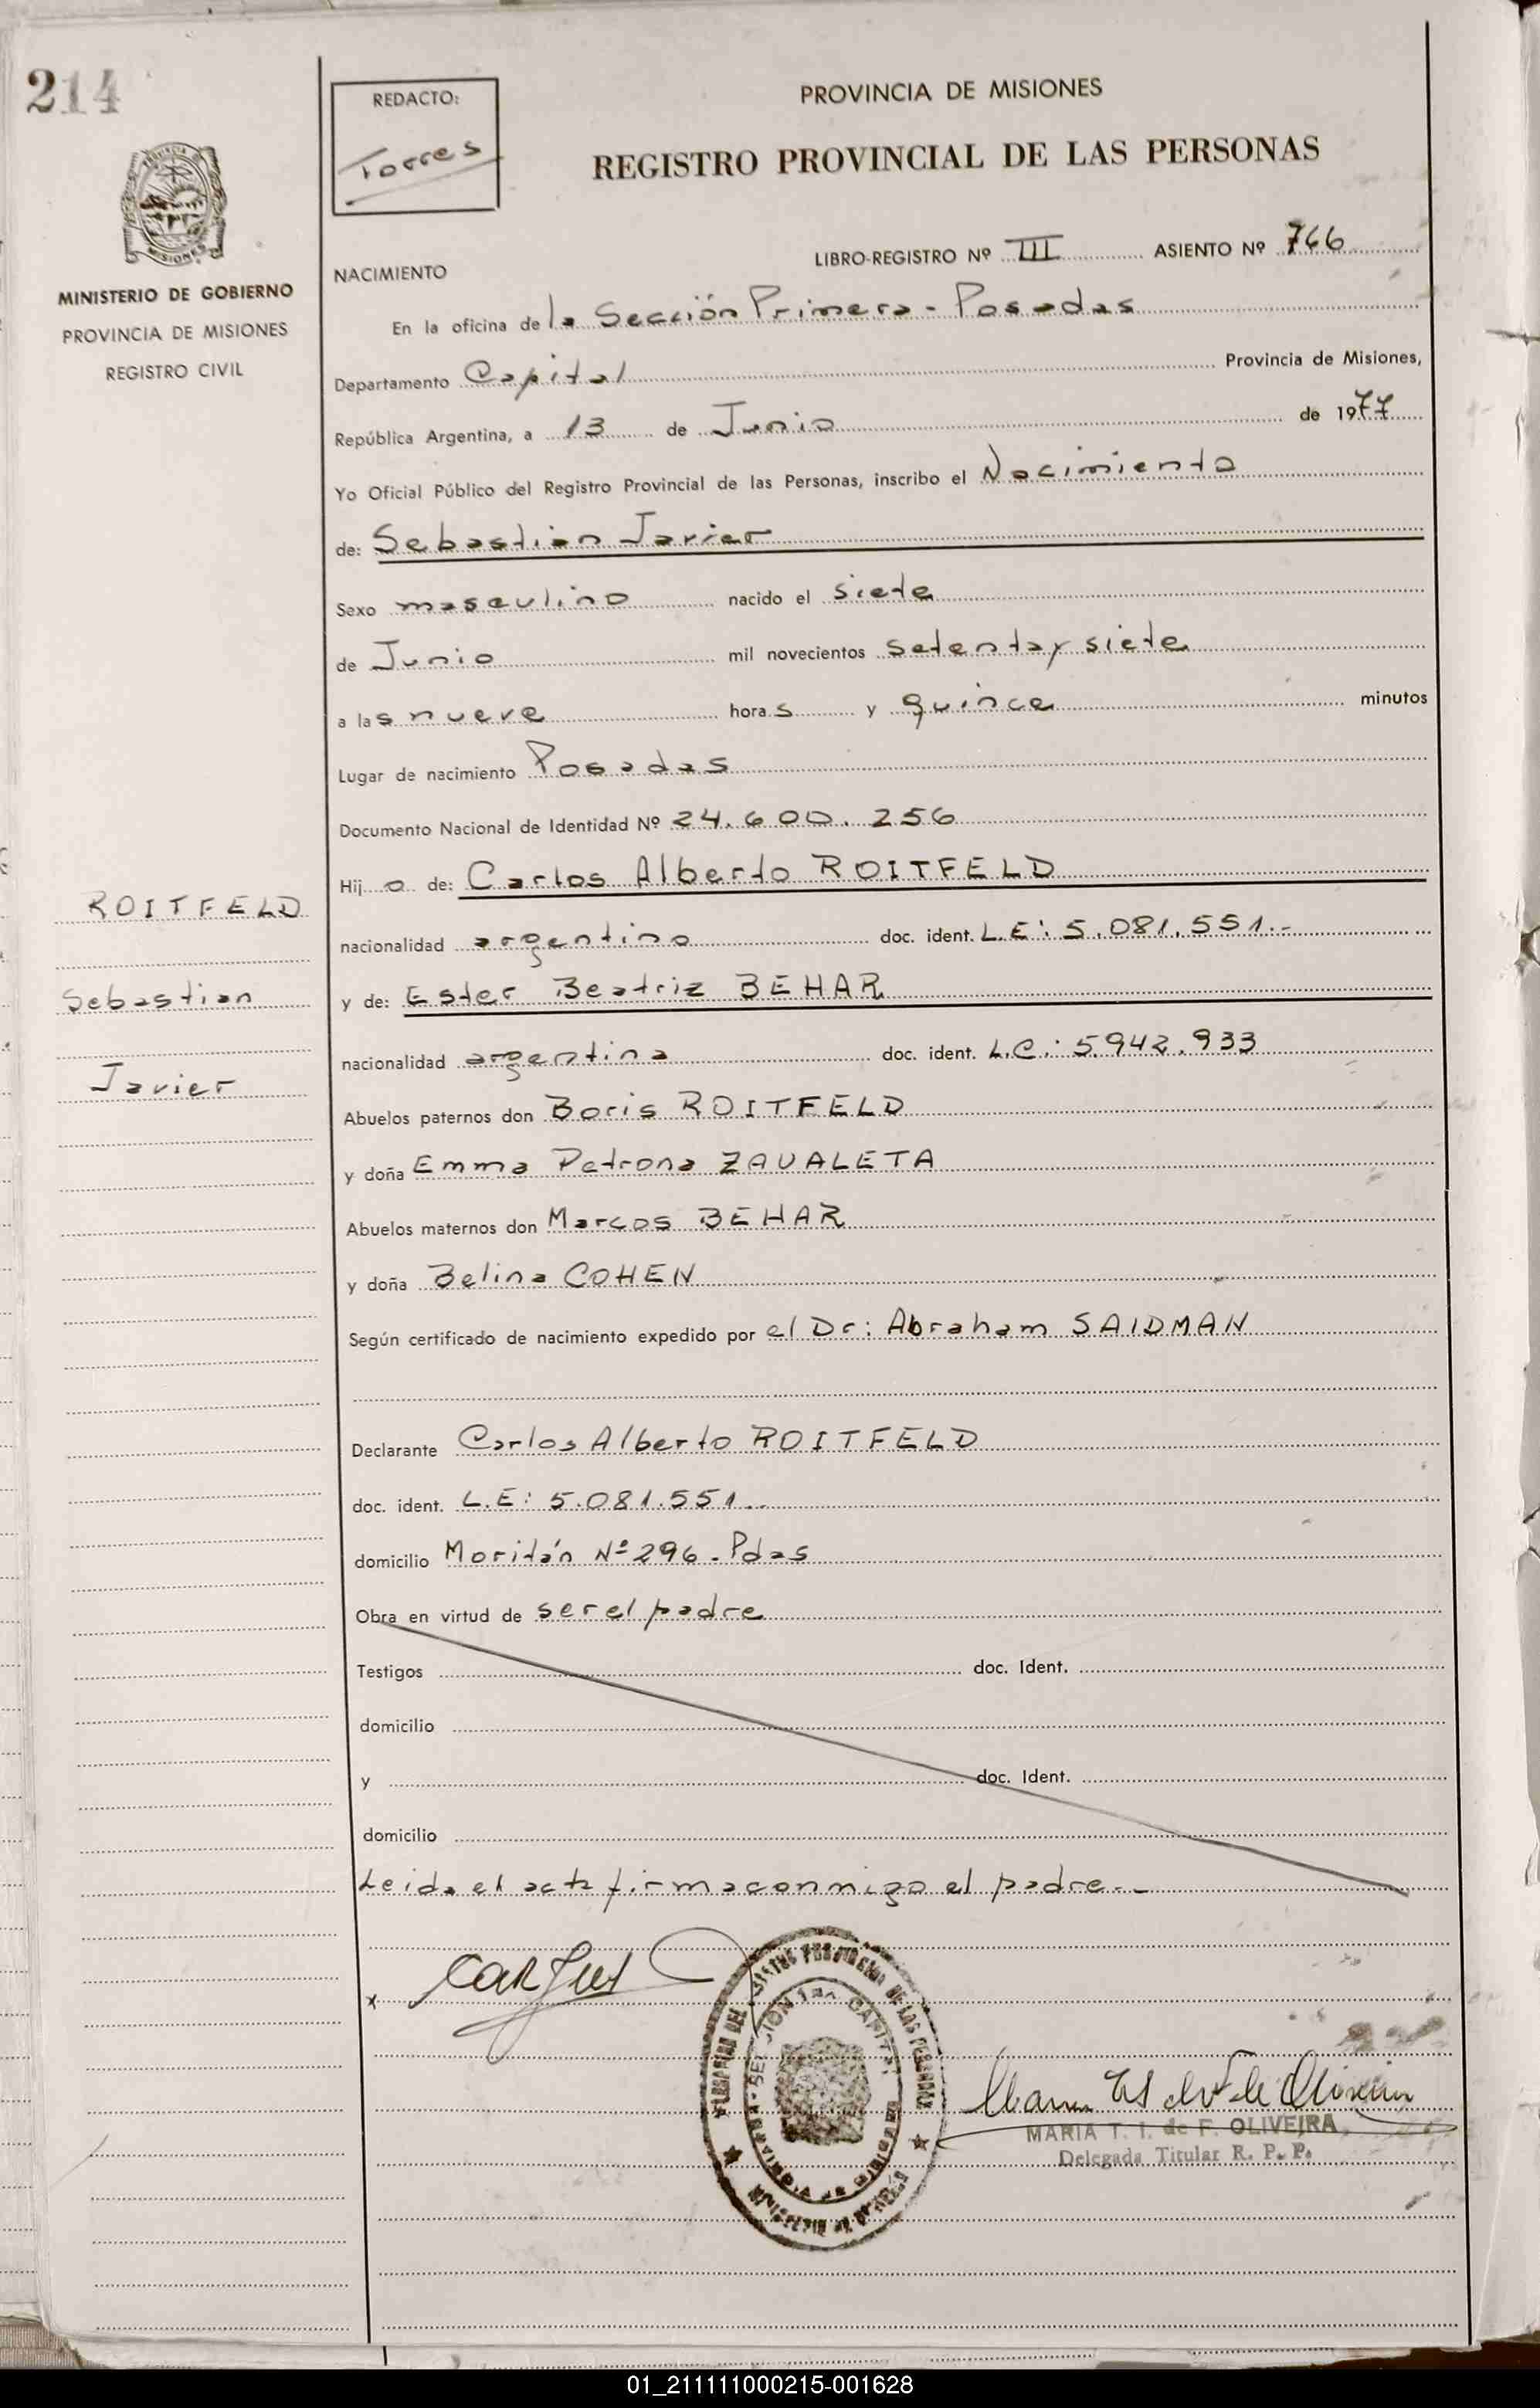 214
REDACTO:
Torres
PROVINCIA DE MISIONES
REGISTRO PROVINCIAL DE LAS PERSONAS
MISIONES
MINISTERIO DE GOBIERNO
PROVINCIA DE MISIONES
REGISTRO CIVIL
LIBRO-REGISTRO Nº III ASIENTO Nº 766
NACIMIENTO
En la oficina de la Sección Primera - Posadas
Departamento Capital Provincia de Misiones,
República Argentina, a 13 de Junio de 1977
Yo Oficial Público del Registro Provincial de las Personas, inscribo el Nacimiento
de: Sebastian Javier
Sexo masculino nacido el siete
de Junio mil novecientos setenta y siete
a las nueve horas y quince minutos
Lugar de nacimiento Posadas
Documento Nacional de Identidad Nº 24.600.256
Hijo de: Carlos Alberto ROITFELD
ROITFELD
nacionalidad argentino doc. ident. L.E: 5.081.551.-
Sebastian
y de: Ester Beatriz BEHAR
nacionalidad argentina doc. ident. L.C.: 5.942.933
Javier
Abuelos paternos don Boris ROITFELD
y doña Emma Petrona ZAVALETA
Abuelos maternos don Marcos BEHAR
y doña Belina COHEN
Según certificado de nacimiento expedido por el Dr: Abraham SAIDMAN
Declarante Carlos Alberto ROITFELD
doc. ident. L.E: 5.081.551..
domicilio Moritán Nº 296. Pdas
Obra en virtud de ser el padre
Testigos doc. Ident.
domicilio
y doc. Ident.
domicilio
Leida el acta firma conmigo el padre.-
x
PROVINCIAL DE LAS PERSONAS
SECCION 1ra. CAPITAL
MARIA T. I. de F. OLIVEIRA
Delegada Titular R. P. P.
01_211111000215-001628